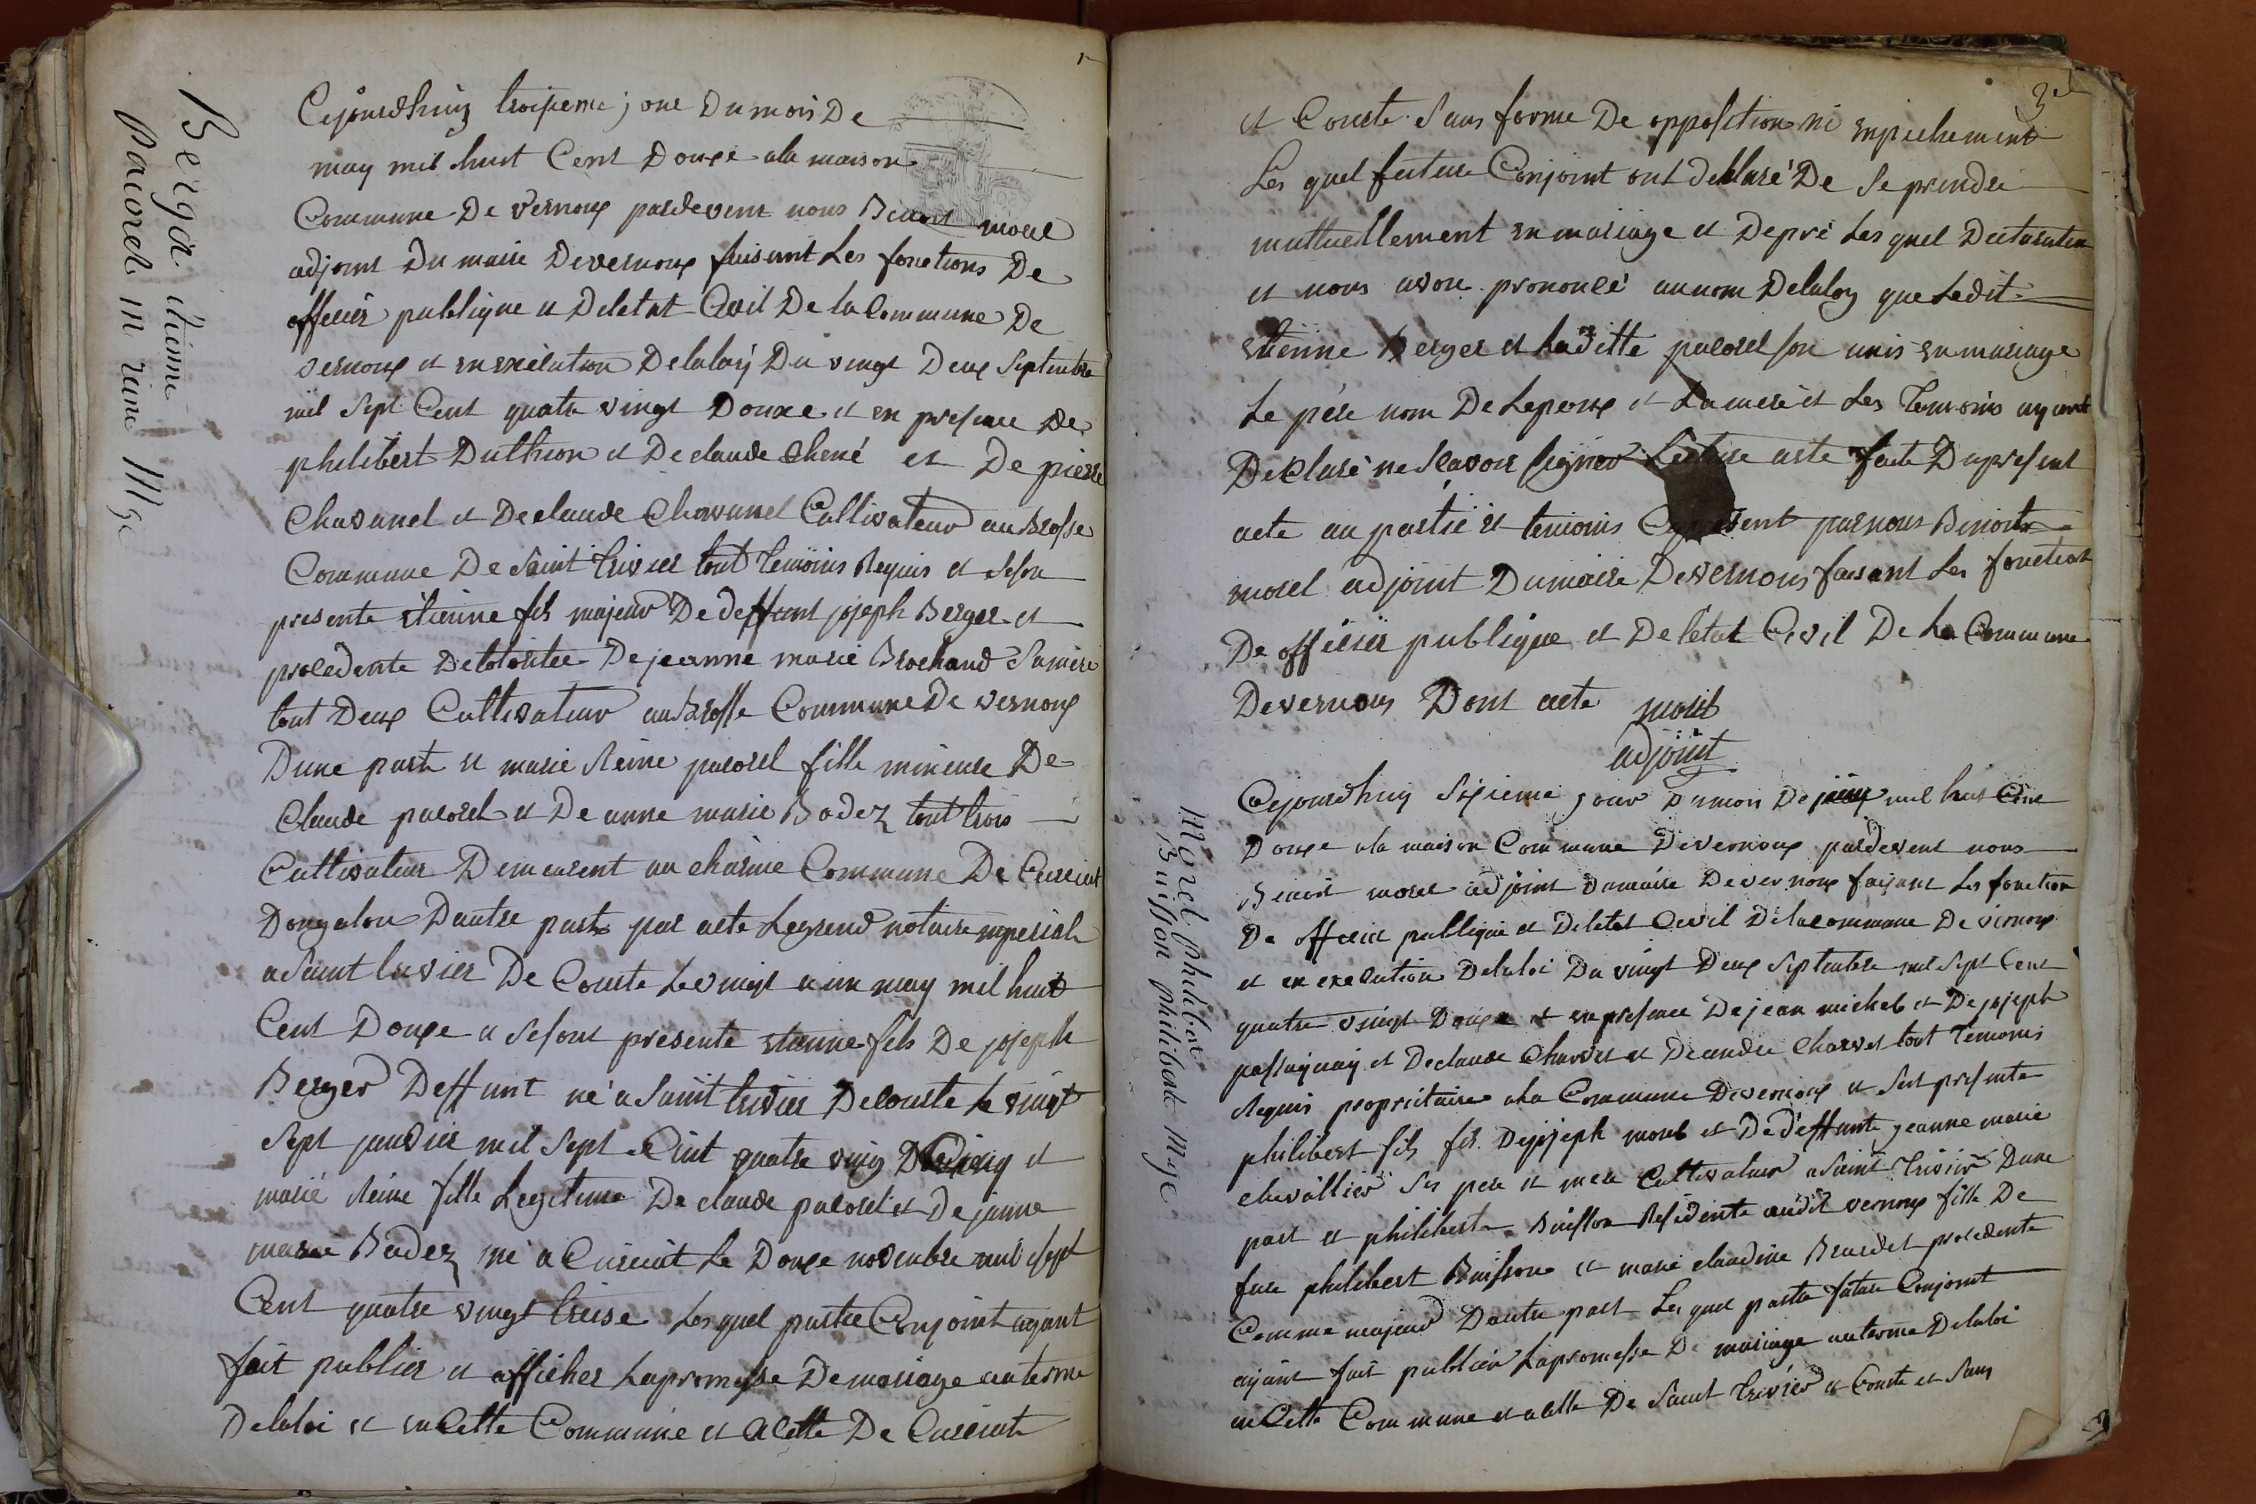 Berger étienne
pacorel m reine Mge
Cejourdhuy troisieme jour du mois De
may mil huit Cent Douze ala maison
Commune De vernoux pardevent nous Benoit morel
adjoint Du maire Devernoux faisant Les fonctions De
officier publique et Deletat Civil De la Commune De
vernoux et en exécution Delaloy Du vingt Deux Septembre
mil Sept Cent quatre vingt Douze et en presence De
philibert Duthion et De claude Chené et De pierre
Chavanel et Declaude Chavanel Cultivateur au Brosse
Commune De Saint trivier tout temoins Requis et Seson
presente étienne fils majeur De deffunt joseph Berger et
procedente De lotoritee De jeanne marie Brochand Samere
tout Deux Cultivateur au Brosse Commune De vernoux
Dune parte et marie Reine pacorel fille mineure De
Claude pacorel et De anne marie Badez tout trois
Cultivateur Demeurent au charme Commune De Curciat
Dongalon Dautre parte par acte Legrend notaire imperial
a Saint trivier De Courte Le vingt et un may mil huit
Cent Douze et Sesont presente étienne fils De joseph
Berger Deffunt né a Saint trivier Decourte Le vingt
Sept janvier mil Sept Cent quatre ving et
marie Reine fille Legitime De claude pacorel et De janne
marie Badez né a Curciat Le Douze novembre mil Sept
Cent quatre vingt treise Les quel partie Conjoint ayant
fait publier et afficher Lapromesse De mariage auterme
Delaloi et en Cette Commune et a Cette De Curciat
3
et Courte Sans forme De opposition ni enpichement
Les quel future Conjoint ont déklaré De Se prendre
muttuellement en mariage et Depré Les quel Declaration
et nous avon prononcé aunom Delaloy que Ledit
étienne Berger et Laditte pacorel son unis en mariage
Le pére nom De Lepoux et La mere et Les temoins ayant
Deklaré ne Scavoir Signer Lecture aete faite Dupresent
acte au partié et temoins Cypresent parnous Benoit
morel adjoint Dumaire Devernoux faisant Les fonction
De officier publique et De létat Civil De La Commune
Devernoux Dont acte morel
adjoint
Morel philibert
Buisson philiberte Mge
Cejourdhuy Sixieme jour Dumois De juin mil huit Cent
Douze ala maison Commune Devernoux pardevent nous
Benoit morel adjoint Dumaire Devernoux faisant Les fonction
De officier publique et Deletat Civil Delacommune De vernoux
et en execution Delaloi Du vingt Deux Septembre mil Sept Cent
quatre vingt Douze et enpresence De jean michel et De joseph
et De claude Charvet et De andre Charvet tout temoins
Requis propriétaire ala Commune Devernoux et Sest presente
philibert fils fils De joseph morel et De deffunte jeanne marie
chevallier Ses pere et mere Cultivateur a Saint trivier Dune
part et philiberte Buisson Residente audit vernoux fille De
fue philibert Buisson et marie claudine Brardet procedente
Comme majeur Dautre part Les quel partie future Conjoint
ayant fait publier Lapromesse De mariage auterme Delaloi
en Cette Commune et a celle De Saint trivier et Courte et Sans